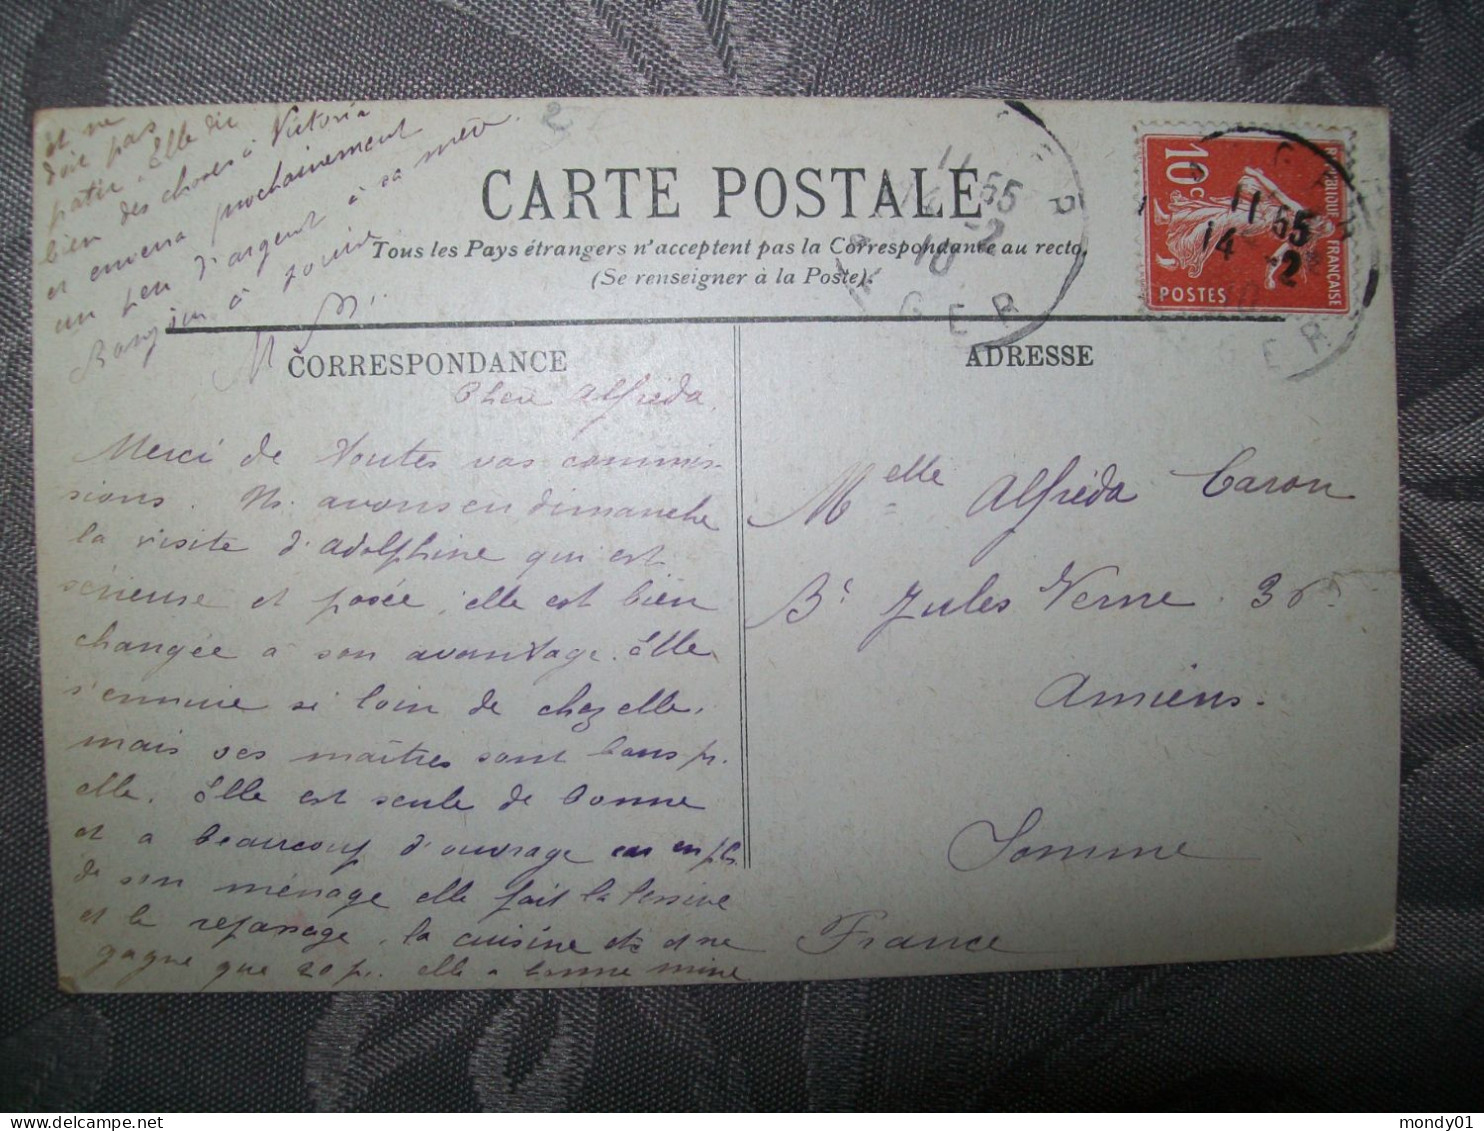 CARTE POSTALE
Tous les Pays étrangers n'acceptent pas la Correspondance au recto.
(Se renseigner à la Poste).
CORRESPONDANCE
ADRESSE
Chère Alfréda,
Merci de toutes vos commis-
sions. Ns. avons eu dimanche
la visite d'Adolphine qui est
sérieuse et posée, elle est bien
changée à son avantage. Elle
s'ennuie si loin de chez elle,
mais ses maîtres sont bons pr.
elle. Elle est seule de bonne
et a beaucoup d'ouvrage car en pls
de son ménage elle fait la lessive
et le repassage, la cuisine etc et ne
gagne que 20 fr. elle a bonne mine
et ne
doit pas
patir. Elle dit
bien des choses à Victoria
et enverra prochainement
un peu d'argent à sa mère.
Bonjour à
M.
Melle Alfréda Caron
Bd Jules Verne 36
Amiens.
Somme
France
RÉPUBLIQUE FRANÇAISE
10c
POSTES
11 55
14 -2
10
11 55
14 -2
10
GER
ER
mondy01